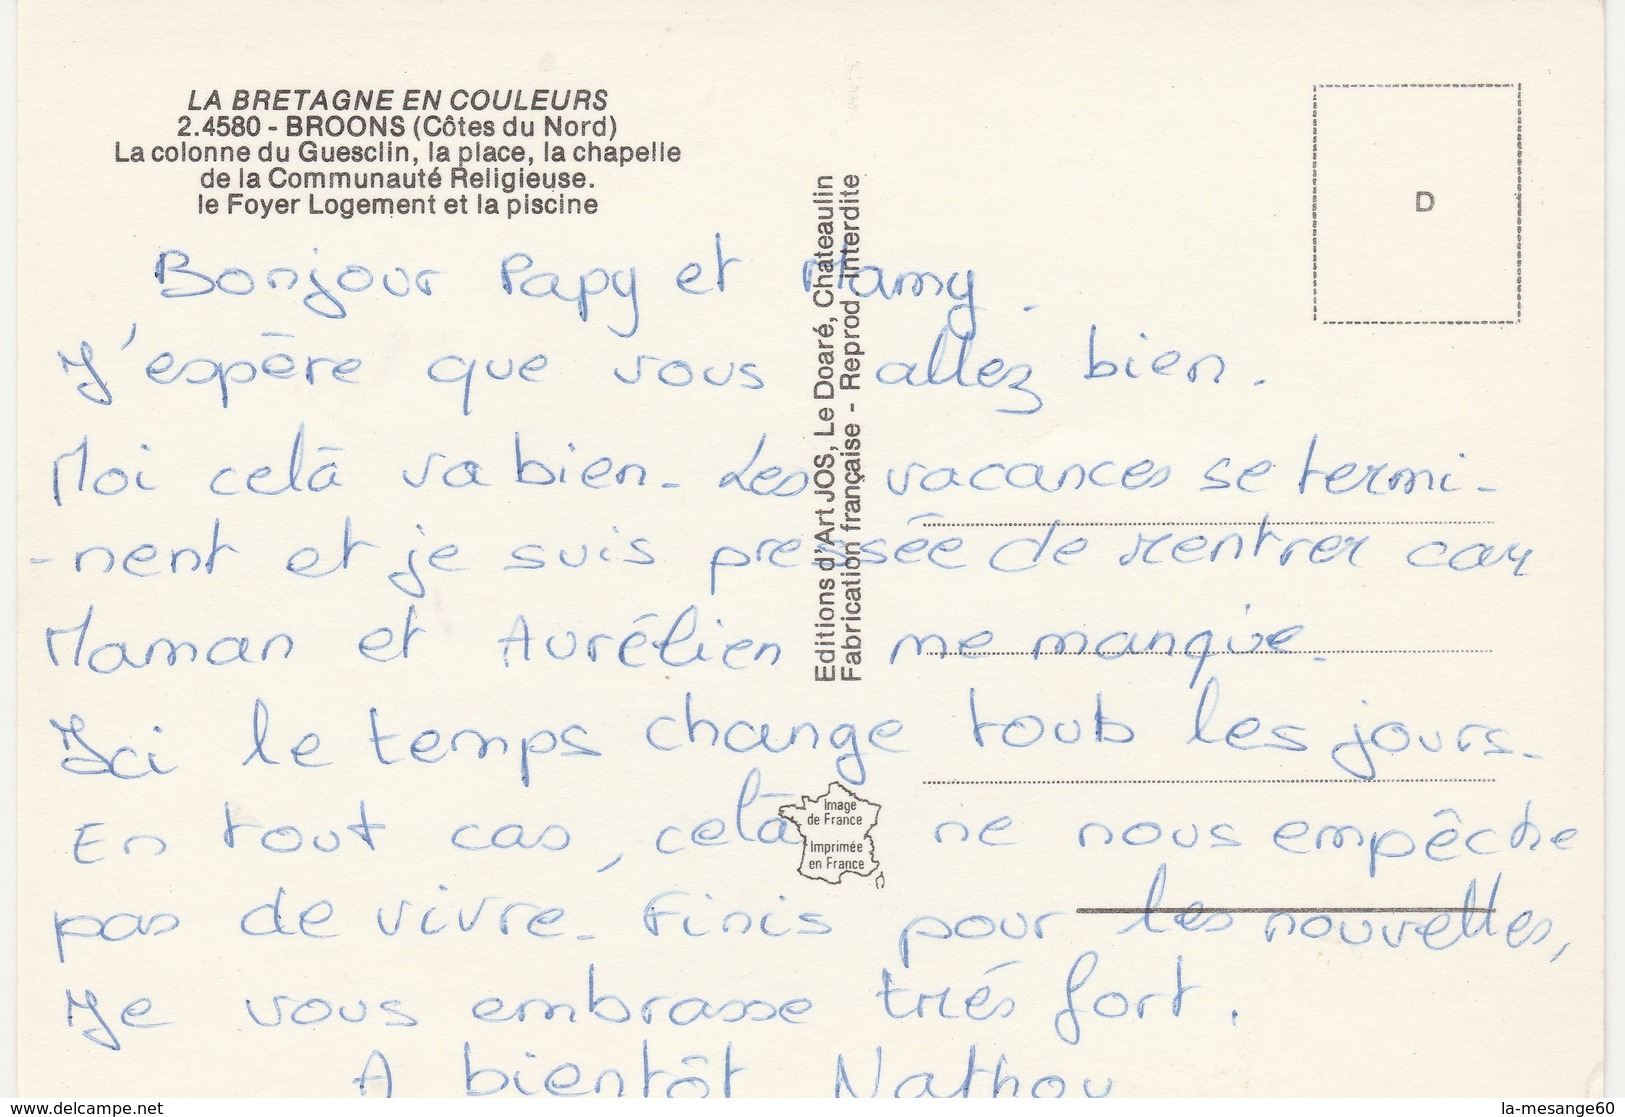 LA BRETAGNE EN COULEURS
2.4580 - BROONS (Côtes du Nord)
La colonne du Guesclin, la place, la chapelle
de la Communauté Religieuse.
le Foyer Logement et la piscine
D
Editions d'Art JOS, Le Doaré, Chateaulin
Fabrication française - Reprod interdite
Bonjour Papy et Mamy.
J'espère que vous allez bien.
Moi celà va bien. Les vacances se termi-
-nent et je suis pressée de rentrer car
Maman et Aurélien me manque.
Ici le temps change toub les jours.
En tout cas, celà ne nous empêche
pas de vivre. Finis pour les nouvelles,
Je vous embrasse trés fort.
A bientôt Nathou
Image
de France
Imprimée
en France
www.delcampe.net
la-mesange60